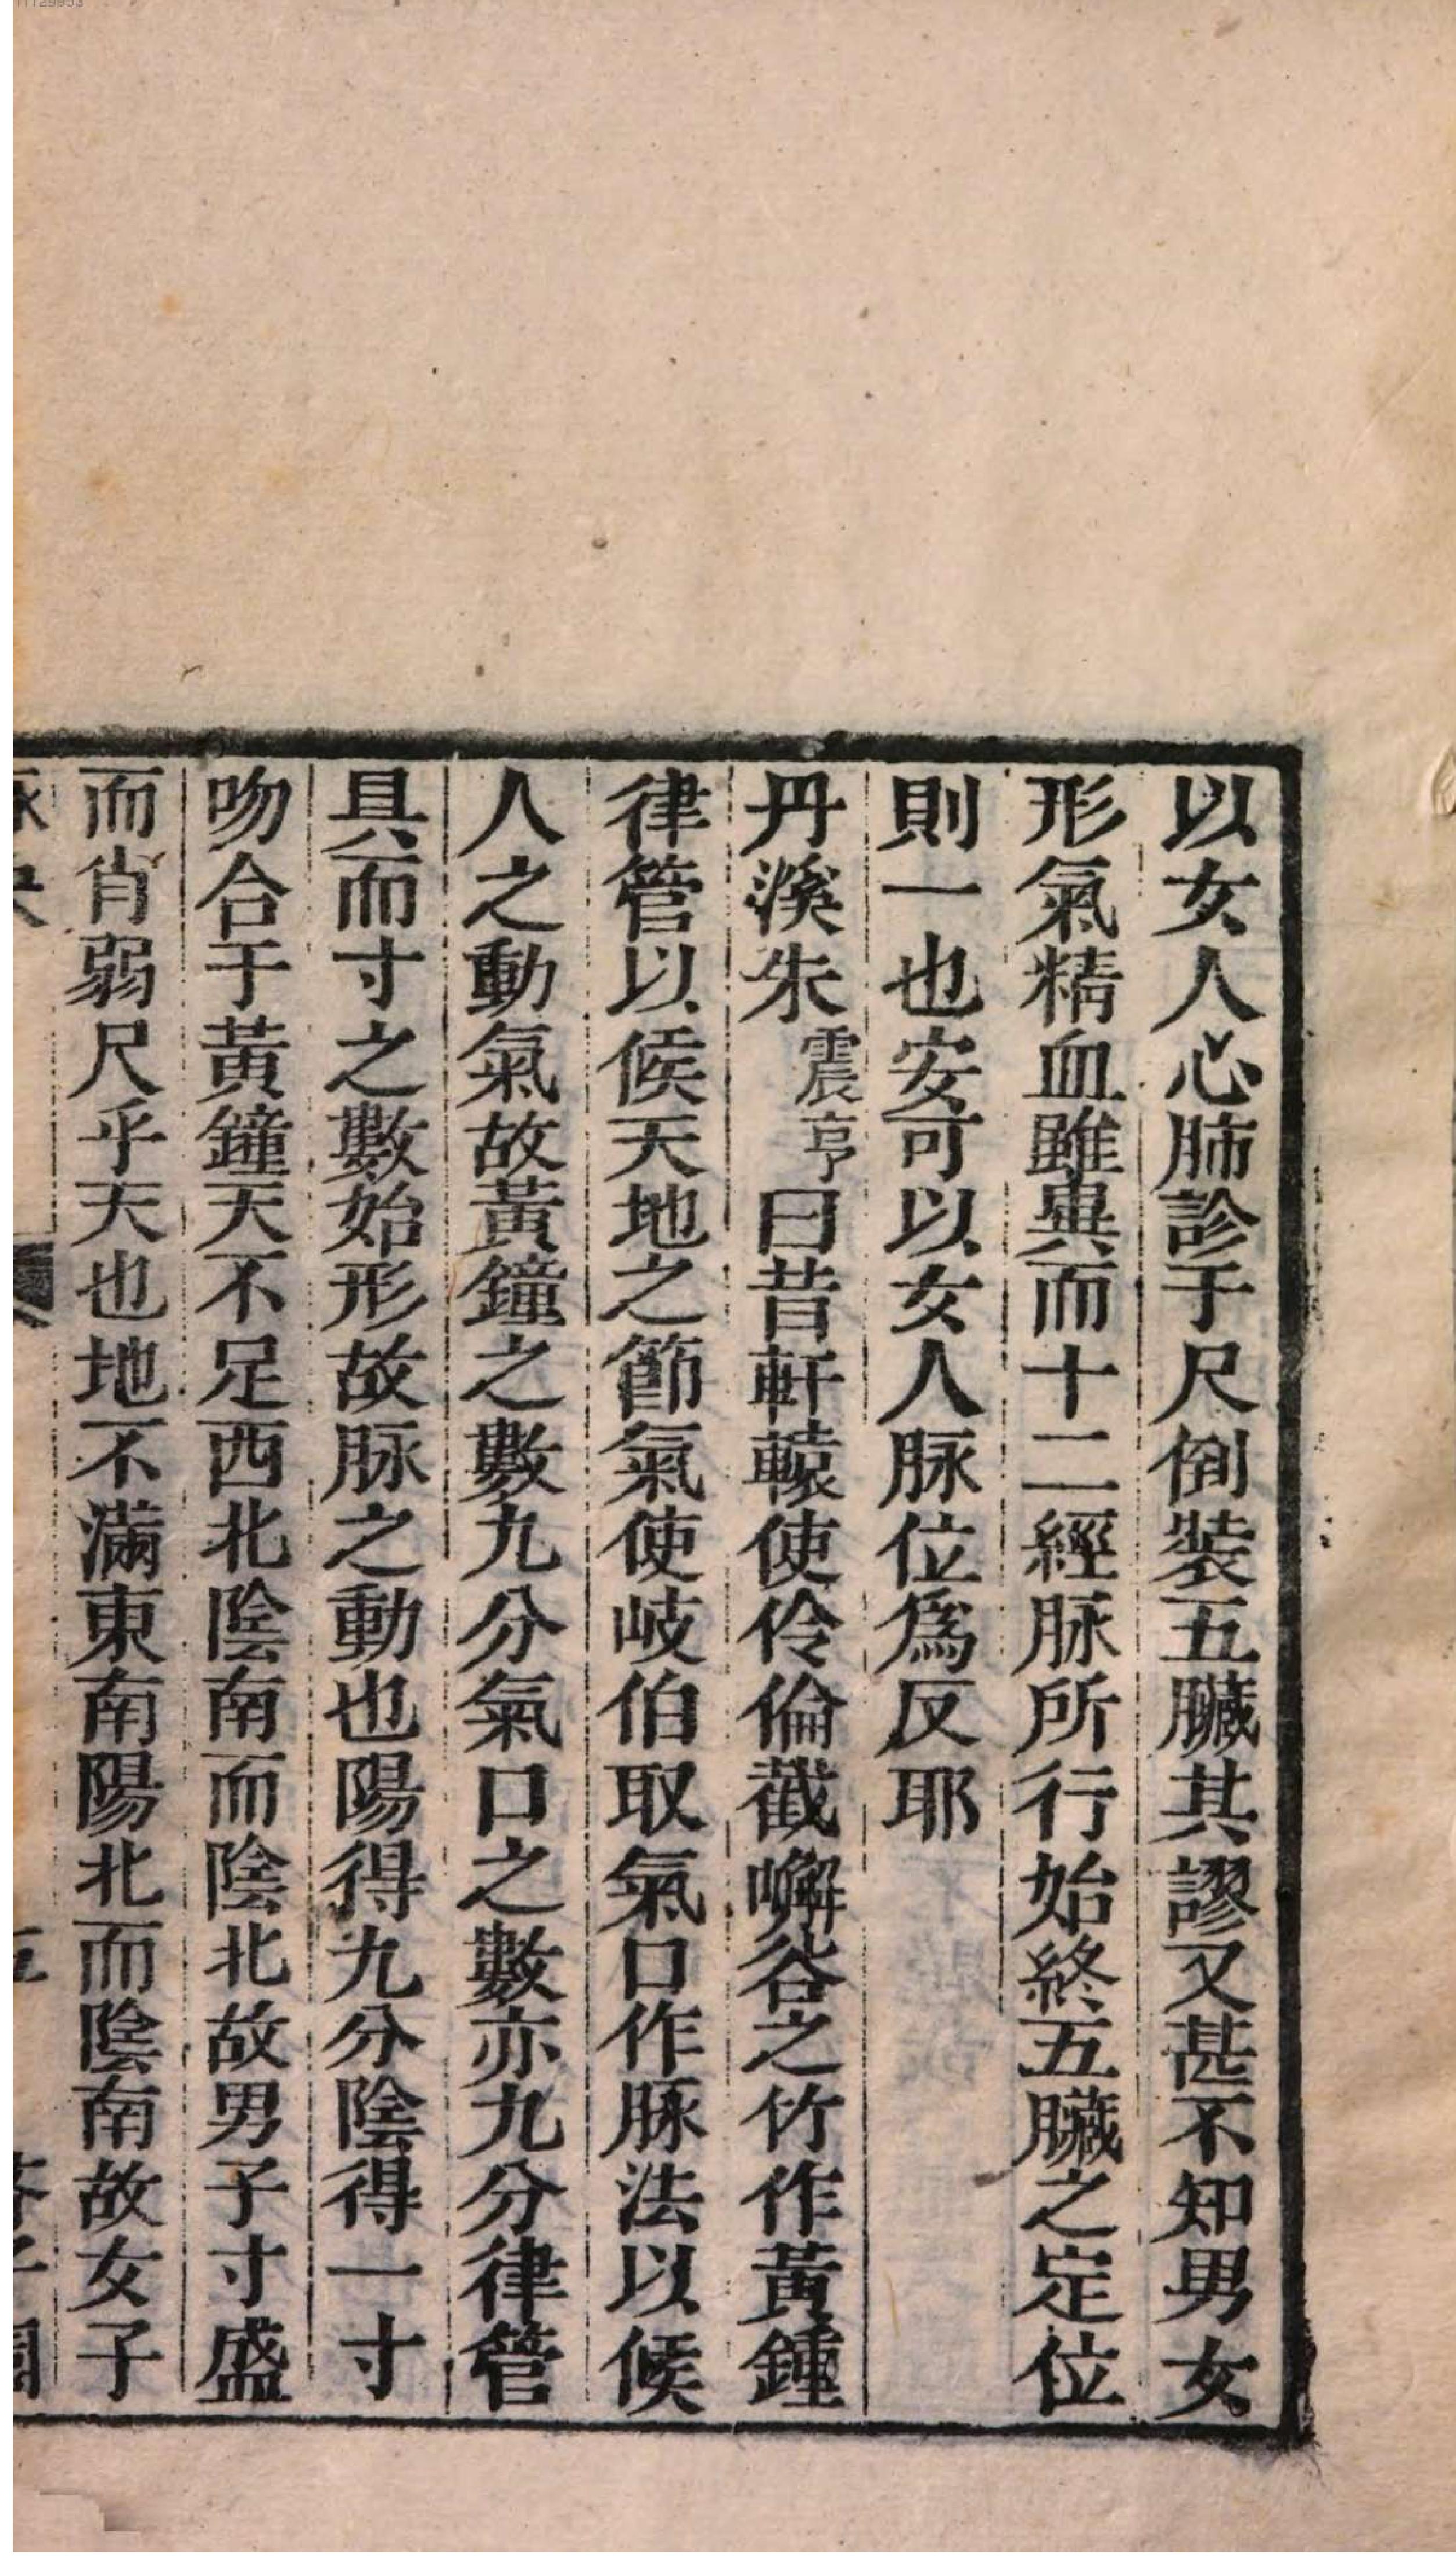 以女人心肺診于尺倒裝五臟其謬又甚不知男女
形氣精血雖異而十二經脉所行始終五臟之定位
則一也安可以女人脉位爲反耶
丹溪朱震亨曰昔軒轅使伶倫截嶰谷之竹作黃鍾
律管以候天地之節氣使岐伯取氣口作脉法以候
人之動氣故黃鐘之數九分氣口之數亦九分律管
具而寸之數始形故脉之動也陽得九分陰得一寸
吻合于黃鐘天不足西北陰南而陰北故男子寸盛
而肖弱尺乎天也地不滿東南陽北而陰南故女子